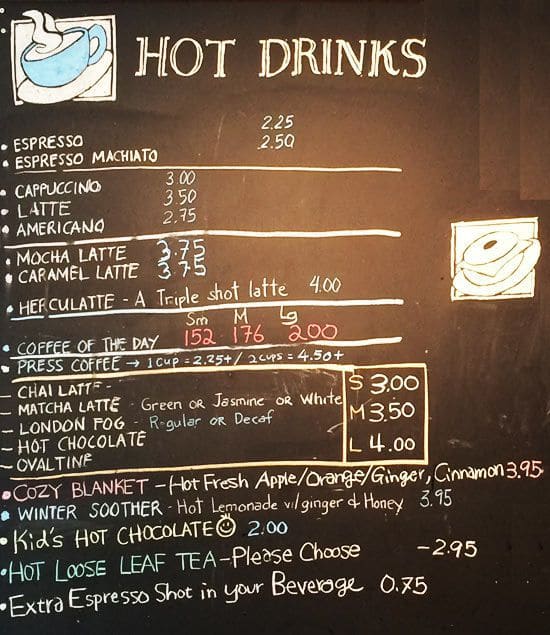 HOT DRINKS
• ESPRESSO 2.25
• ESPRESSO MACHIATO 2.50
• CAPPUCCINO 3.00
• LATTE 3.50
• AMERICANO 2.75
• MOCHA LATTE 3.75
• CARAMEL LATTE 3.75
• HERCULATTE - A Triple shot latte 4.00
Sm M Lg
• COFFEE OF THE DAY 152 176 200
• PRESS COFFEE → 1 CUP = 2.25+ / 2 CUPS = 4.50+
- CHAI LATTE - S 3.00
- MATCHA LATTE - Green OR Jasmine OR White
- LONDON FOG - Regular OR Decaf M 3.50
- HOT CHOCOLATE
- OVALTINE L 4.00
• COZY BLANKET - Hot Fresh Apple/Orange/Ginger, Cinnamon 3.95
• WINTER SOOTHER - Hot Lemonade w/ginger & Honey 3.95
• Kid's HOT CHOCOLATE ☺ 2.00
• HOT LOOSE LEAF TEA - Please Choose - 2.95
• Extra Espresso Shot in your Beverage 0.75